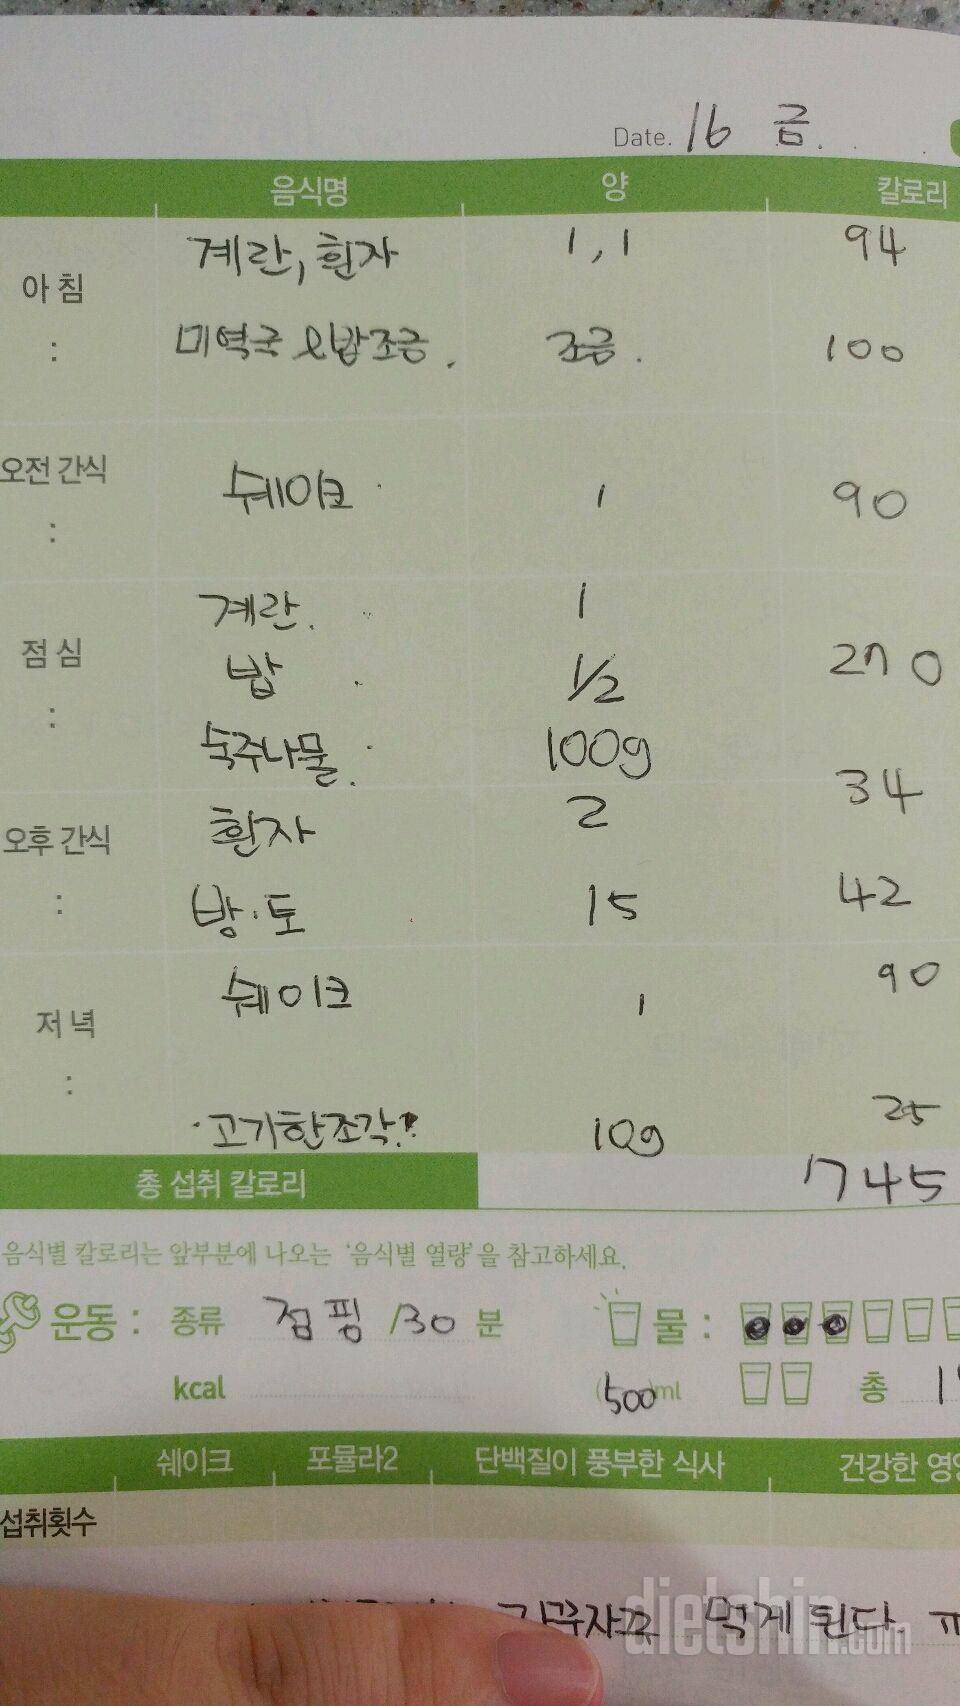 Date. 16 금.
음식명 양 칼로리
아침 계란, 흰자 1, 1 94
: 미역국 &밥조금. 조금. 100
오전 간식 쉐이크 1 90
:
계란. 1
점심 밥 1/2 270
:
숙주나물. 100g
흰자 2 34
오후 간식
: 방·토 15 42
쉐이크 1 90
저녁
:
·고기한조각? 10g 25
총 섭취 칼로리 1745
음식별 칼로리는 앞부분에 나오는 '음식별 열량'을 참고하세요.
운동 : 종류 점핑 /30 분 물 :
kcal (500)ml 총
쉐이크 포뮬라2 단백질이 풍부한 식사 건강한
섭취횟수
자꾸자꾸 먹게된다
dietshin.com